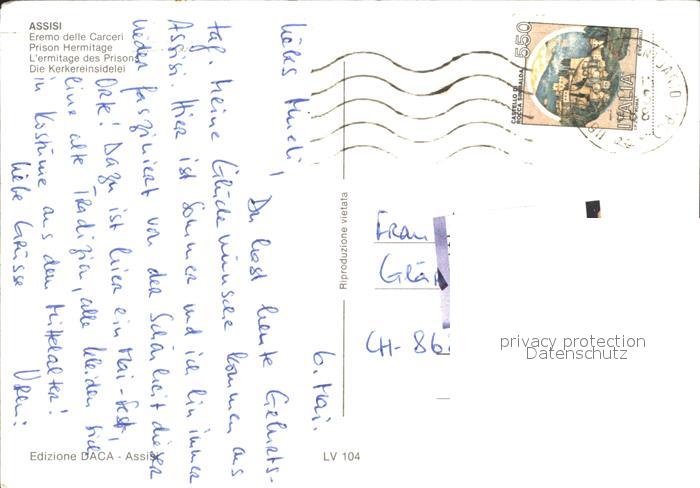 ASSISI
Eremo delle Carceri
Prison Hermitage
L'ermitage des Prisons
Die Kerkereinsidelei
6. Mai.
Liebs Trudi,
Du hast heute Geburts-
tag. Meine Glückwünsche kommen aus
Assisi. Hier ist Sommer und ich bin immer
wieder fasziniert von der Schönheit dieser
Orte! Dazu ist hier ein Mai-Fest,
eine alte Tradizion, alle kleiden sich
in Kostüme aus dem Mittelalter!
Liebe Grüsse
Vreni
Edizione DACA - Assisi
LV 104
Riproduzione vietata
550
CASTELLO DI
ROCCA SINIBALDA
ITALIA
Frau
CH- 86
privacy protection
Datenschutz